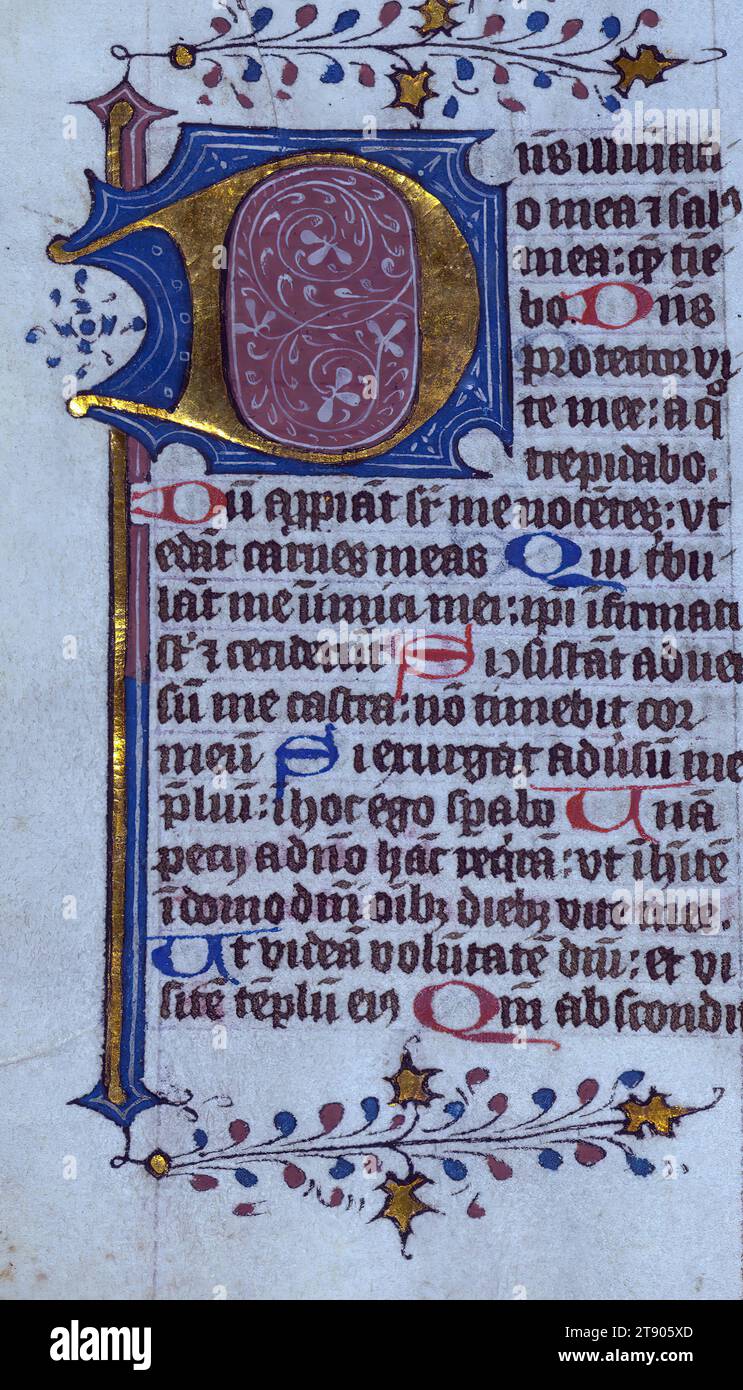 Dn̄s illumiati
o mea ⁊ sal᷒
mea: qͫ tīe
bo. Dn̄s
protector vi
te mee: a qͦ
trepidabo.
Dū appꝓiāt sr̄ me nocētes: vt
edāt carnes meas Qui tͥbu
lāt me īimici mei: ip̄i īfirmati
st̄ ⁊ ceciderūt Si ↄsistāt aduer
sū me castra: nō timebit cor
meū Si exurgat adūsū me
p̄liū: ī hoc ego sp̄abo Unā
pecij a dn̄o hāc reqͥrā: vt īhitē
ī domo dn̄i oīb; dieb; vite mee.
Ut videā volūtatē dn̄i: et vi
sitē tēplū ei᷒ Qm̄ abscondit
alamy
Image ID: 2T905XD
www.alamy.com